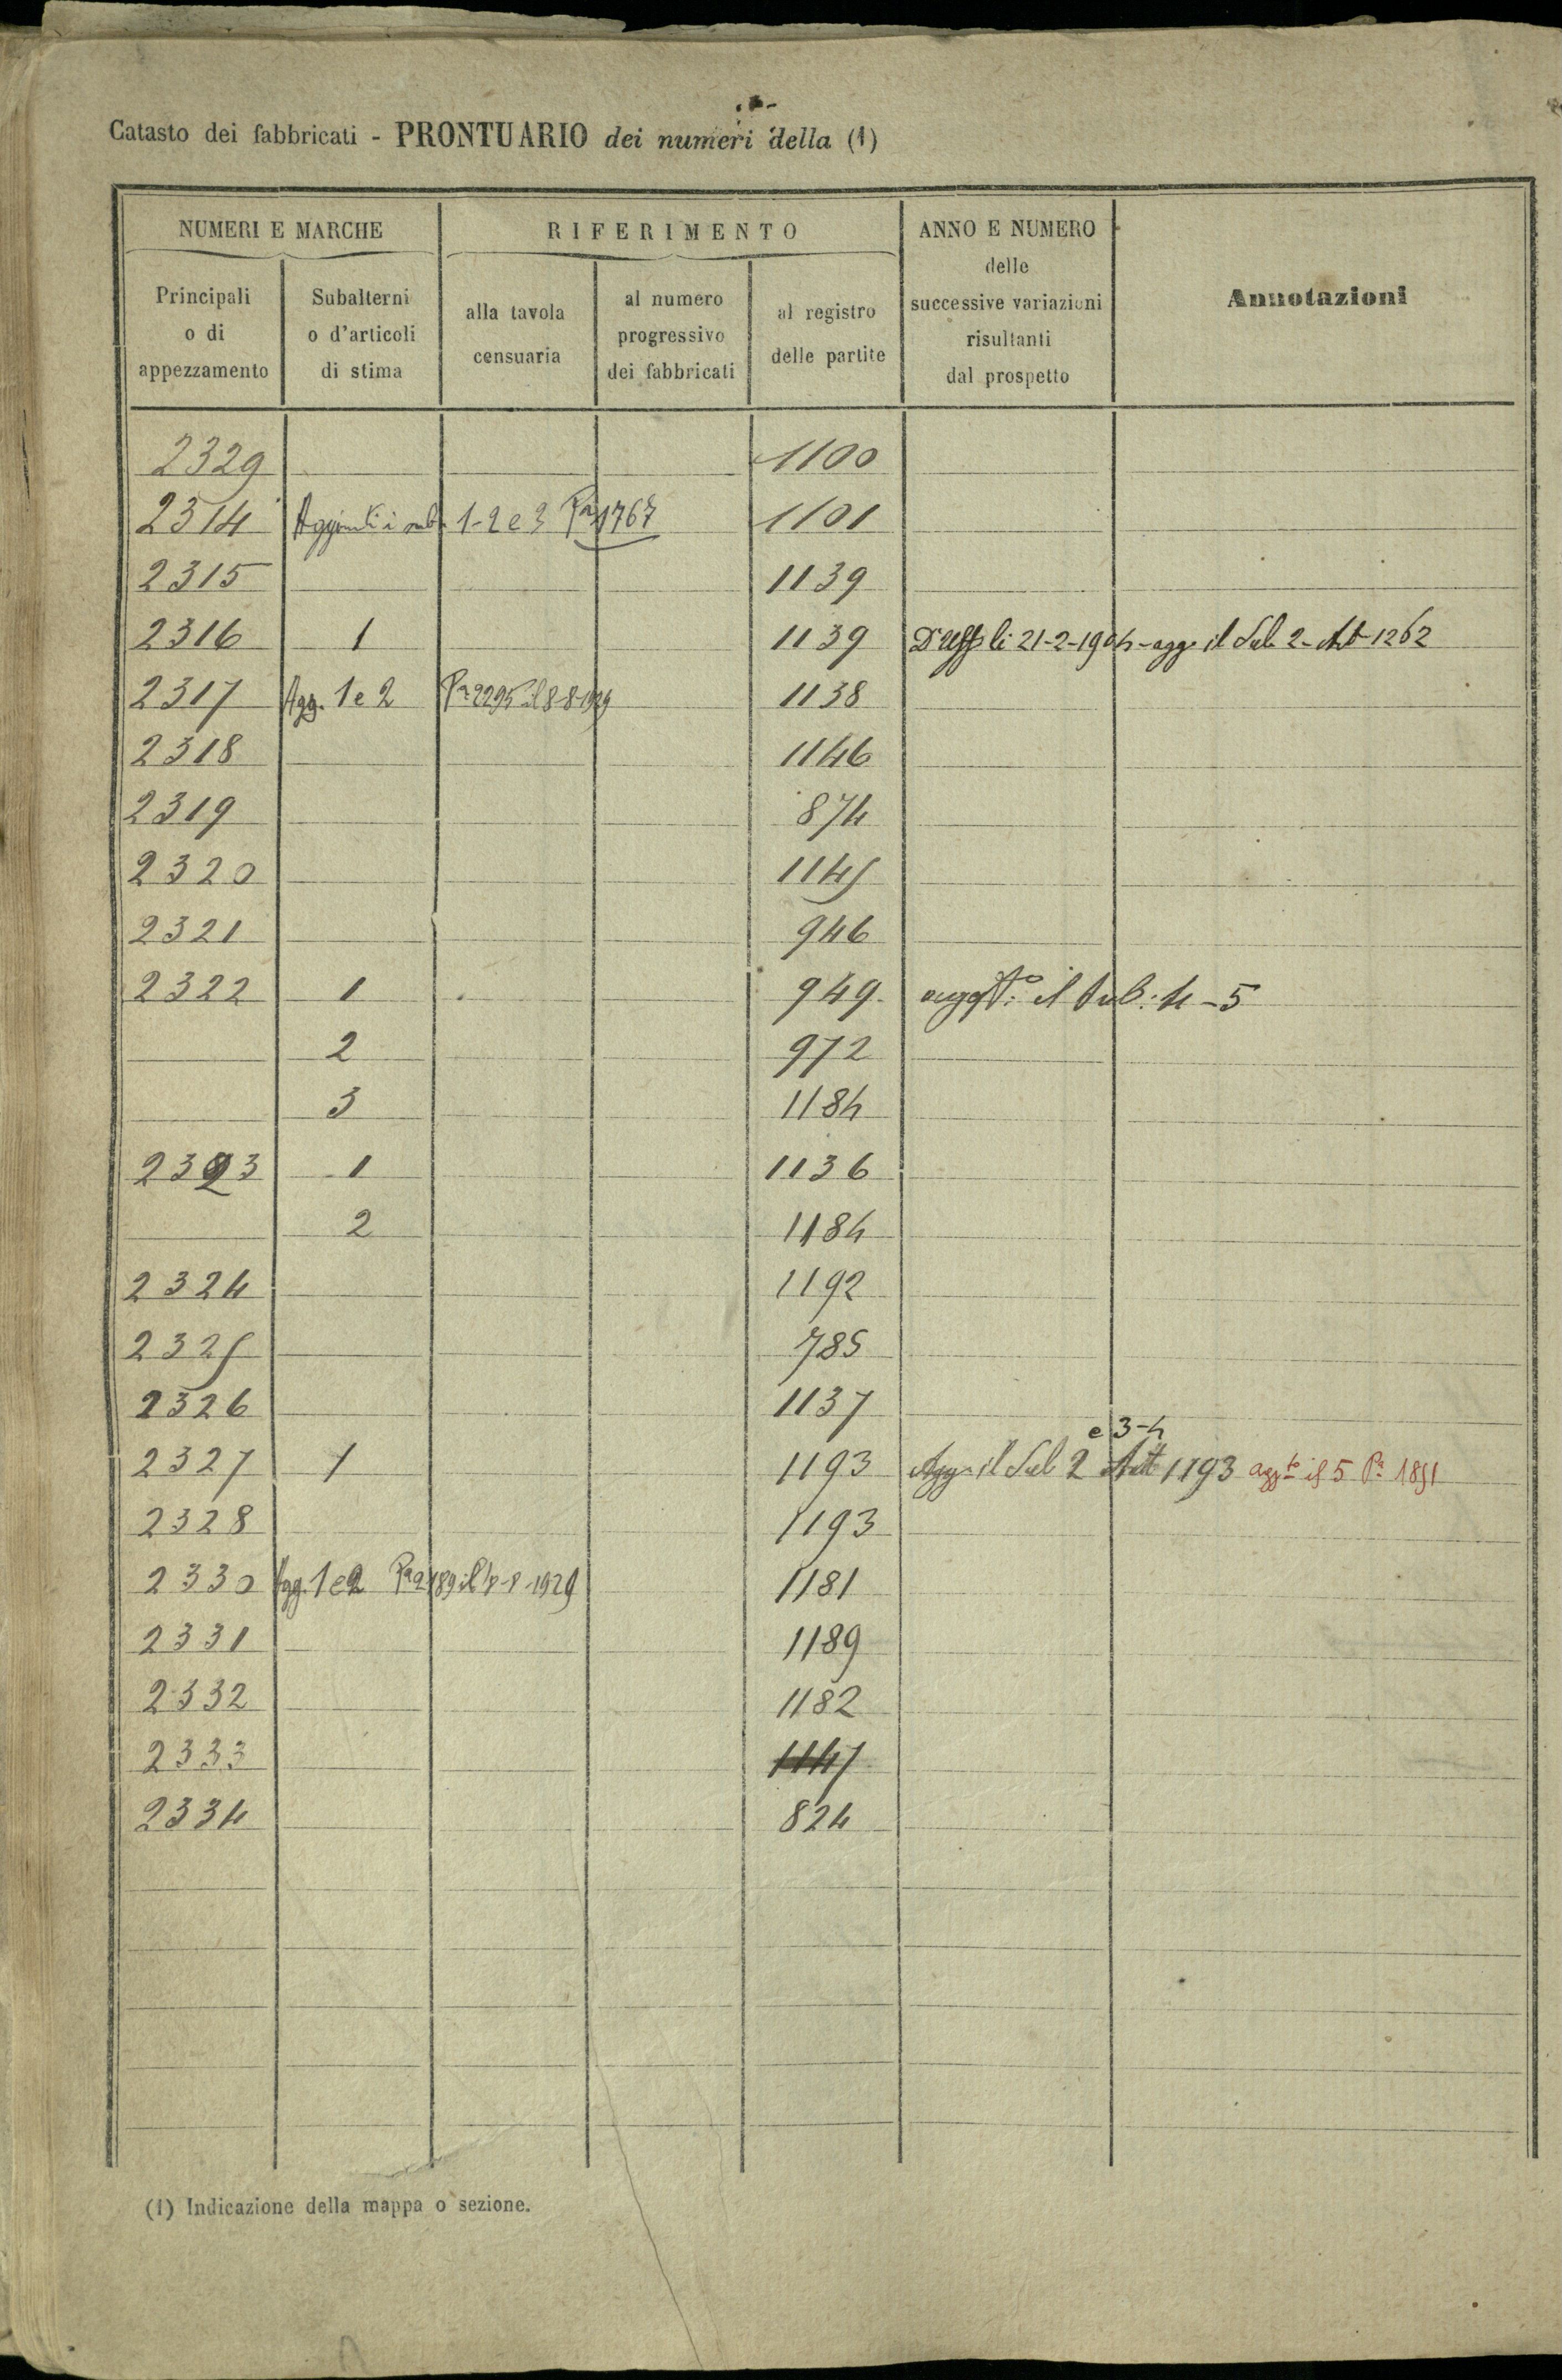 Catasto dei fabbricati - PRONTUARIO dei numeri della (1)
NUMERI E MARCHE
RIFERIMENTO
ANNO E NUMERO
delle
successive variazioni
risultanti
dal prospetto
Annotazioni
Principali
o di
appezzamento
Subalterni
o d'articoli
di stima
alla tavola
censuaria
al numero
progressivo
dei fabbricati
al registro
delle partite
2329 1100
2314 Aggiunti i sub. 1-2 e 3 Pa 1767 1101
2315 1139
2316 1 1139 D'Uff li 21-2-1904 - agg. il Sub 2 - Art 1262
2317 Agg. 1 e 2 Pa 2295 il 8-8-1929 1138
2318 1146
2319 874
2320 1145
2321 946
2322 1 949 aggto: il sub: 4-5
2 972
3 1184
2323 1 1136
2 1184
2324 1192
2325 785
2326 1137
e 3-4
2327 1 1193 Agg. il Sub 2 Art 1193 aggto il 5 Pa 1891
2328 1193
2330 Agg. 1 e 2 Pa 2189 il 8-8-1929 1181
2331 1189
2332 1182
2333 1147
2334 824
(1) Indicazione della mappa o sezione.